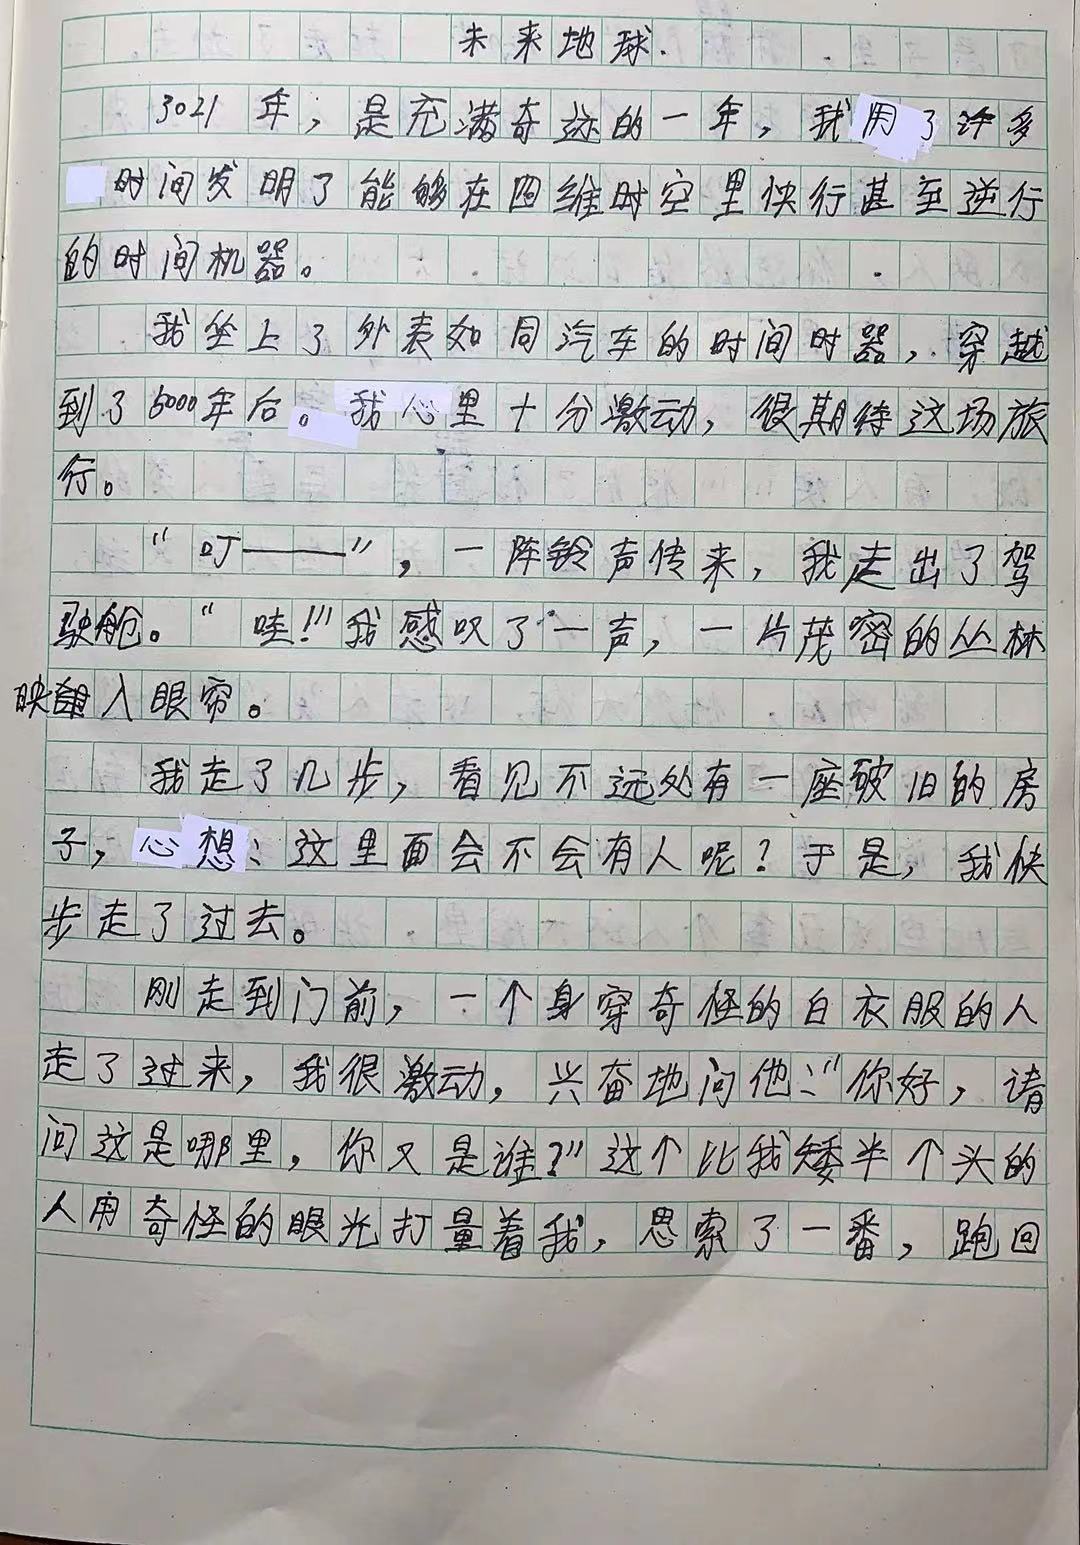 未来地球.
3021年，是充满奇迹的一年，我用了许多
时间发明了能够在四维时空里快行甚至逆行
的时间机器。
我坐上了外表如同汽车的时间时器，穿越
到了5000年后。我心里十分激动，很期待这场旅
行。
“叮——”，一阵铃声传来，我走出了驾
驶舱。“哇！”我感叹了一声，一片茂密的丛林
映入眼帘。
我走了几步，看见不远处有一座破旧的房
子，心想：这里面会不会有人呢？于是，我快
步走了过去。
刚走到门前，一个身穿奇怪的白衣服的人
走了过来，我很激动，兴奋地问他：“你好，请
问这是哪里，你又是谁？”这个比我矮半个头的
人用奇怪的眼光打量着我，思索了一番，跑回